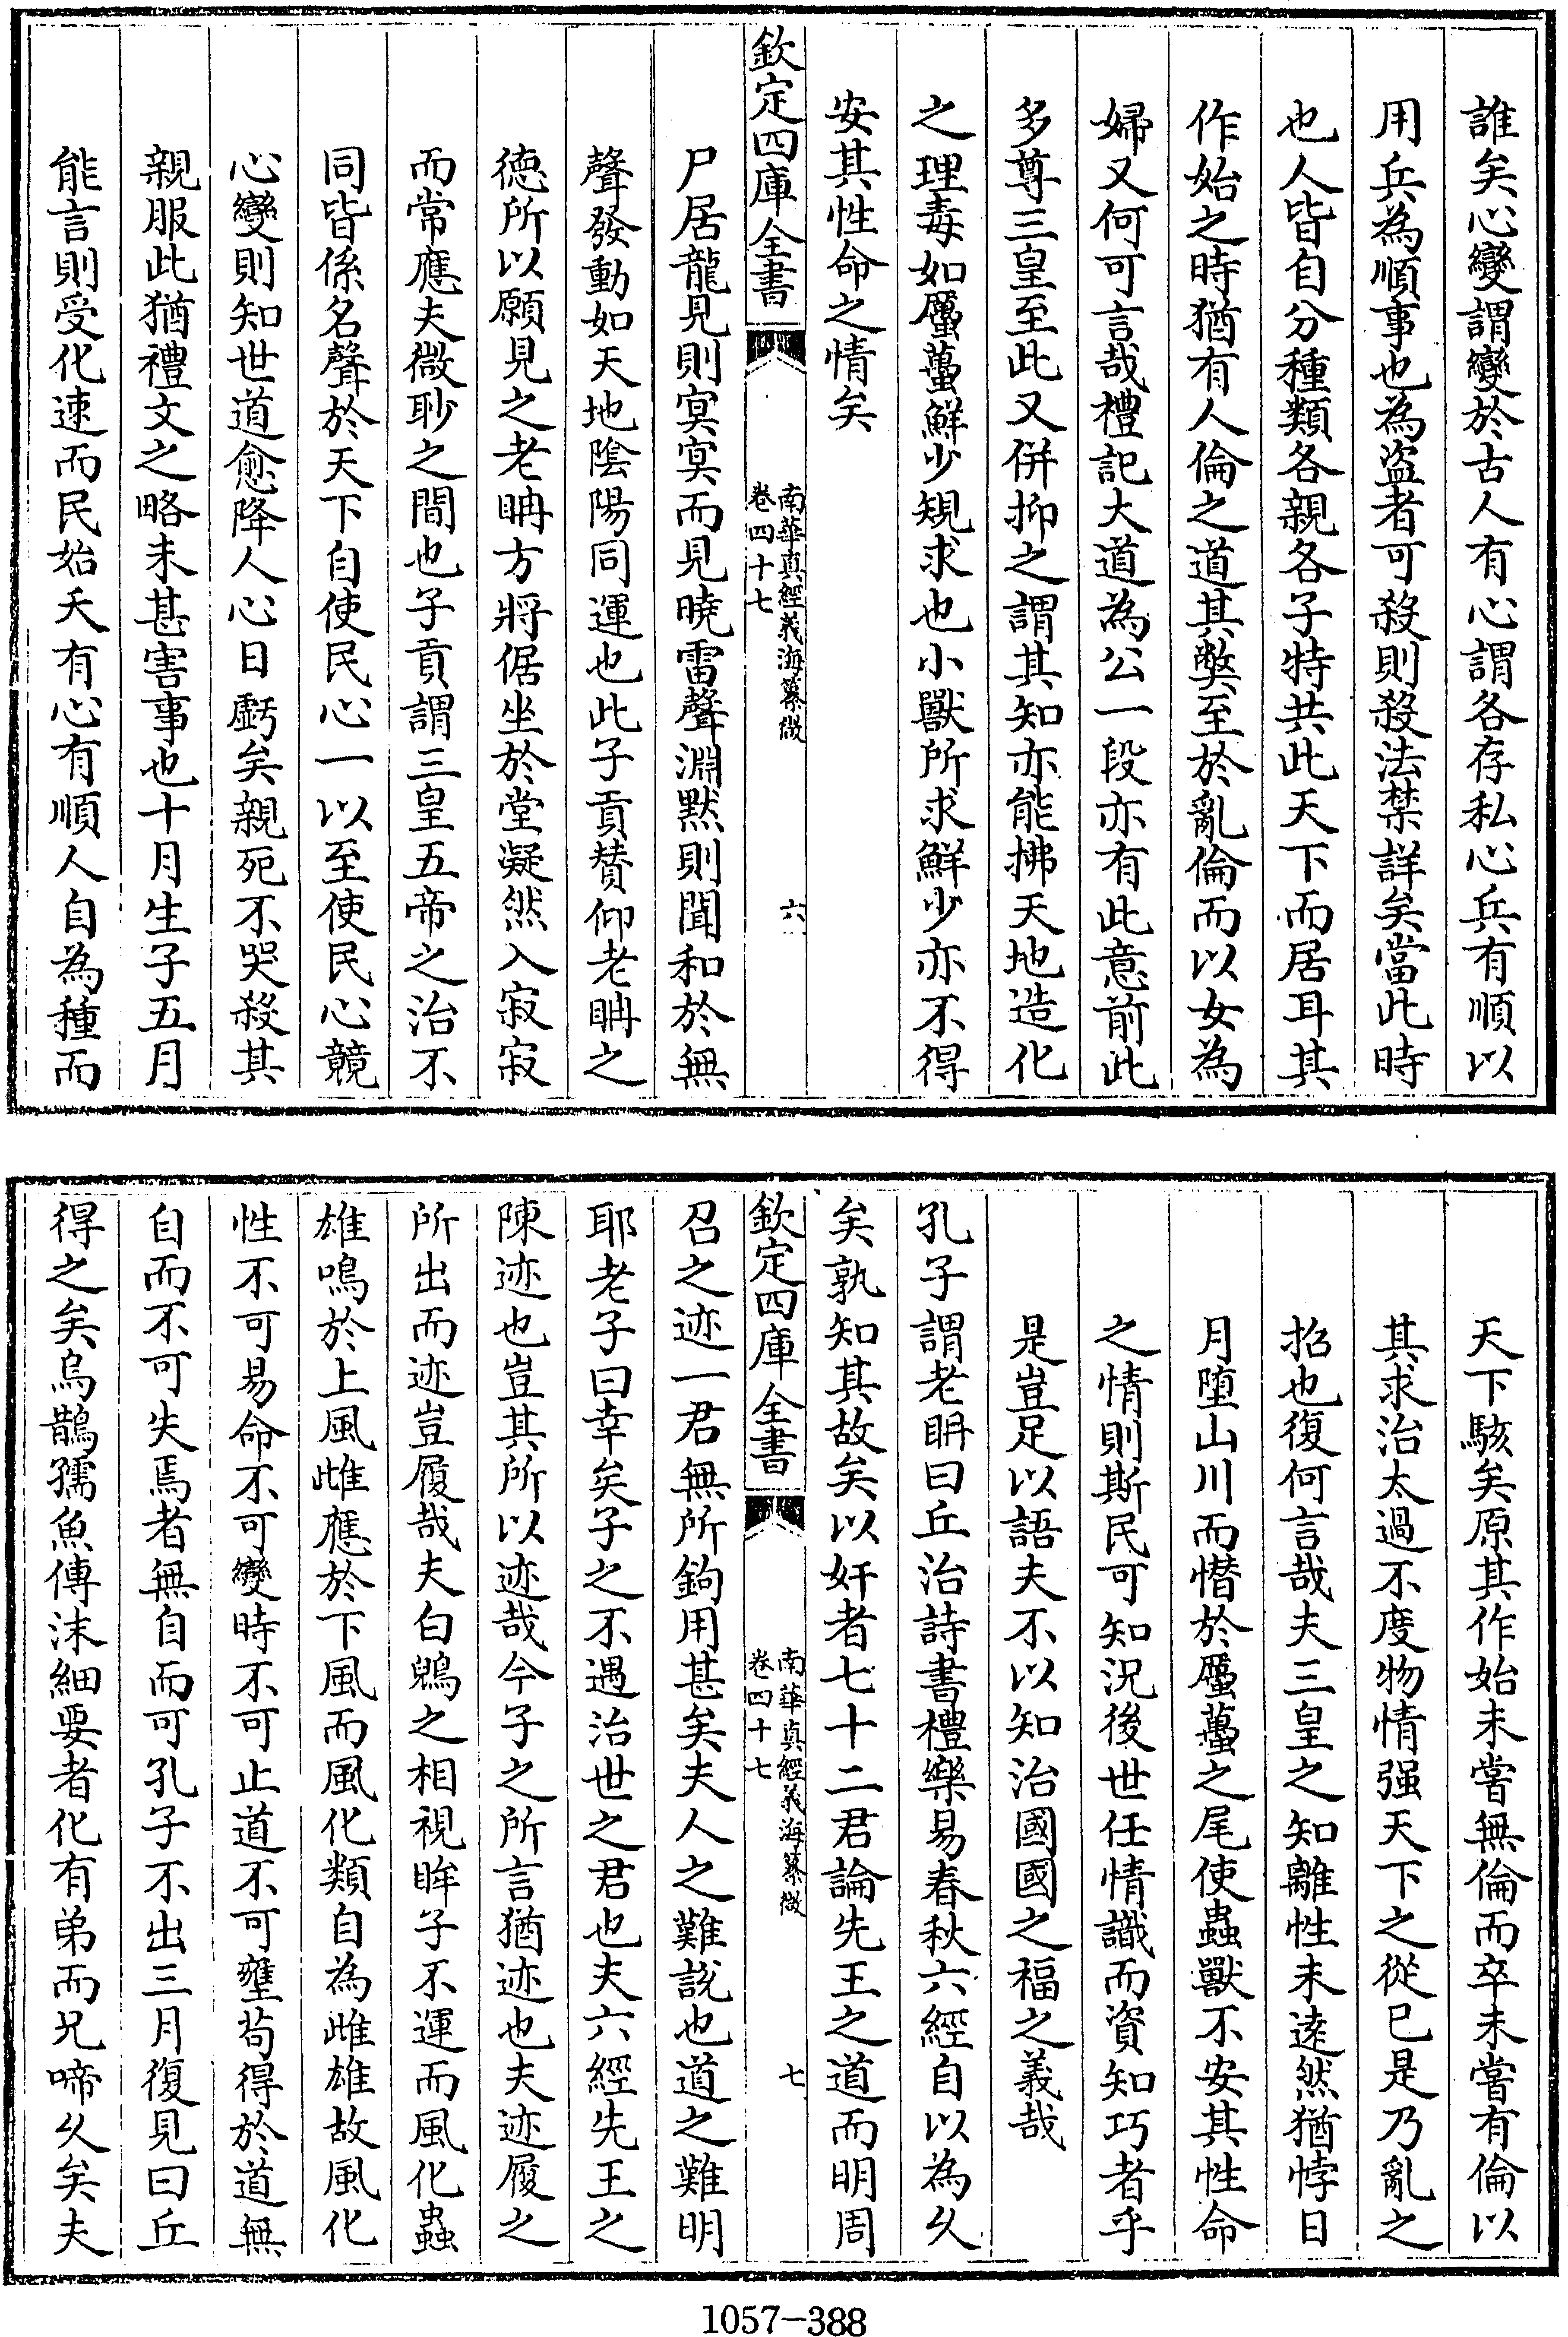 誰矣心變謂變於古人有心謂各存私心兵有順以
用兵為順事也為盜者可殺則殺法禁詳矣當此時
也人皆自分種類各親各子特共此天下而居耳其
作始之時猶有人倫之道其弊至於亂倫而以女為
婦又何可言哉禮記大道為公一段亦有此意前此
多尊三皇至此又併抑之謂其知亦能拂天地造化
之理毒如厲蠆鮮少規求也小獸所求鮮少亦不得
安其性命之情矣
欽定四庫全書
南華真經義海纂微
卷四十七
六
尸居龍見則㝠㝠而見曉雷聲淵黙則聞和於無
聲發動如天地陰陽同運也此子貢賛仰老聃之
德所以願見之老聃方將倨坐於堂凝然入寂寂
而常應夫微眇之間也子貢謂三皇五帝之治不
同皆係名聲於天下自使民心一以至使民心競
心變則知世道愈降人心日虧矣親死不哭殺其
親服此猶禮文之略未甚害事也十月生子五月
能言則受化速而民始夭有心有順人自為種而
天下駭矣原其作始未嘗無倫而卒未嘗有倫以
其求治太過不度物情强天下之從已是乃亂之
招也復何言哉夫三皇之知離性未逺然猶悖日
月墮山川而憯於厲蠆之尾使蟲獸不安其性命
之情則斯民可知況後世任情識而資知巧者乎
是豈足以語夫不以知治國國之福之義哉
孔子謂老聃曰丘治詩書禮樂易春秋六經自以為乆
矣孰知其故矣以奸者七十二君論先王之道而明周
欽定四庫全書
南華真經義海纂微
卷四十七
七
召之迹一君無所鉤用甚矣夫人之難説也道之難明
耶老子曰幸矣子之不遇治世之君也夫六經先王之
陳迹也豈其所以迹哉今子之所言猶迹也夫迹履之
所出而迹豈履哉夫白鶂之相視眸子不運而風化蟲
雄鳴於上風雌應於下風而風化類自為雌雄故風化
性不可易命不可變時不可止道不可壅茍得於道無
自而不可失焉者無自而可孔子不出三月復見曰丘
得之矣烏鵲孺魚傳沫細要者化有弟而兄啼乆矣夫
1057-388